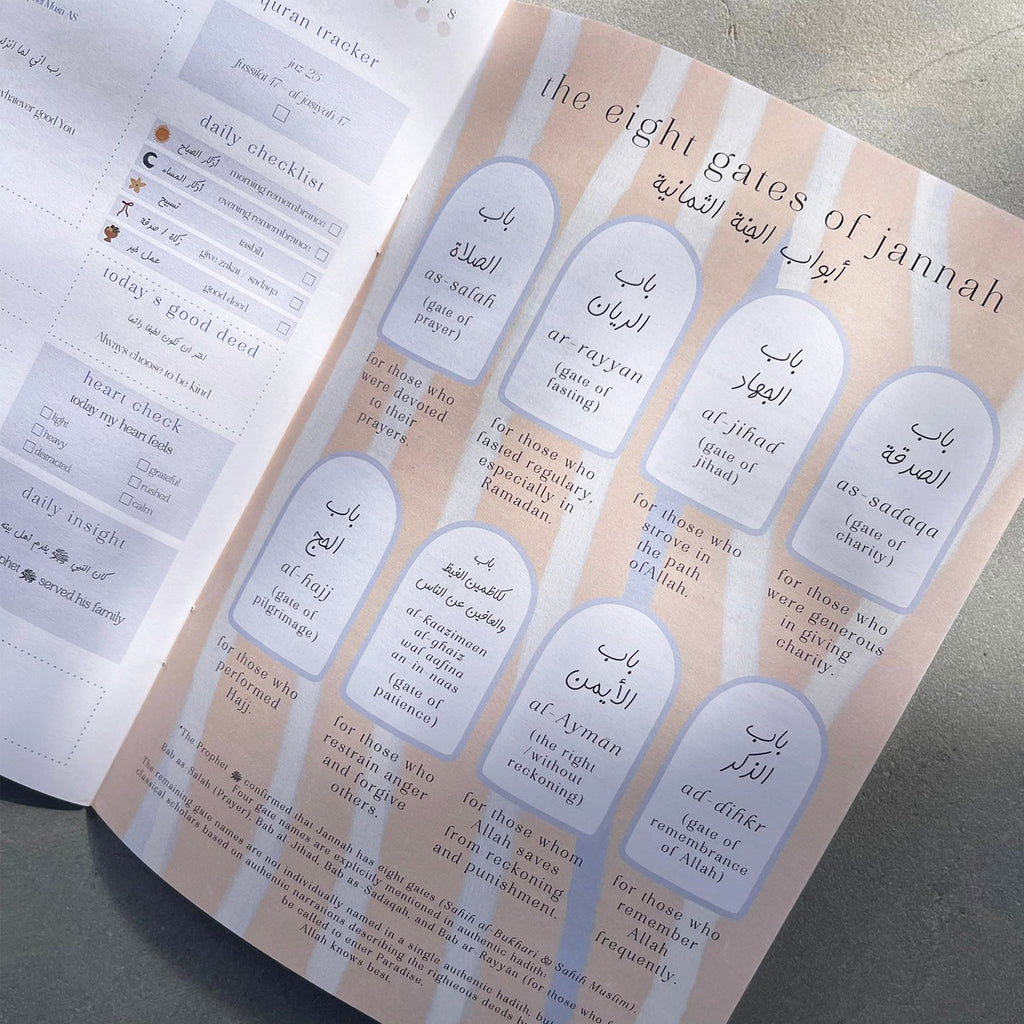 quran tracker
juz 25
fussilat 47 - al jasiyah 37
daily checklist
أذكار الصباح morning remembrance
أذكار المساء evening remembrance
تسبيح tasbih
زكاة / صدقة give zakat / sadaqa
عمل خير good deed
today s good deed
Always choose to be kind
heart check
today my heart feels
light
heavy
distracted
grateful
rushed
calm
daily insight
ﷺ served his family
whatever good You
the eight gates of jannah
أبواب الجنة الثمانية
باب
الصلاة
as-salah
(gate of
prayer)
for those who
were devoted
to their
prayers.
باب
الريان
ar-rayyan
(gate of
fasting)
for those who
fasted regulary,
especially in
Ramadan.
باب
الجهاد
al-jihad
(gate of
jihad)
for those who
strove in
the path
of Allah.
باب
الصدقة
as-sadaqa
(gate of
charity)
for those who
were generous
in giving
charity.
باب
الحج
al-hajj
(gate of
pilgrimage)
for those who
performed
Hajj.
باب
كاظمين الغيظ
والعافين عن الناس
al-kaazimeen
al-ghaiz
wal aafina
an in naas
(gate of
patience)
for those who
restrain anger
and forgive
others.
باب
الأيمن
al-Ayman
(the right
/without
reckoning)
for those whom
Allah saves
from reckoning
and punishment.
باب
الذكر
ad-dihkr
(gate of
remembrance
of Allah)
for those who
remember
Allah
frequently.
*The Prophet ﷺ confirmed that Jannah has eight gates (Sahih al-Bukhari & Sahih Muslim).
Four gate names are explicitly mentioned in authentic hadith:
Bab as-Salah (Prayer), Bab al-Jihad, Bab as-Sadaqah, and Bab ar-Rayyan (for those who
The remaining gate names are not individually named in a single authentic hadith, but
classical scholars based on authentic narrations describing the righteous deeds by
be called to enter Paradise.
Allah knows best.